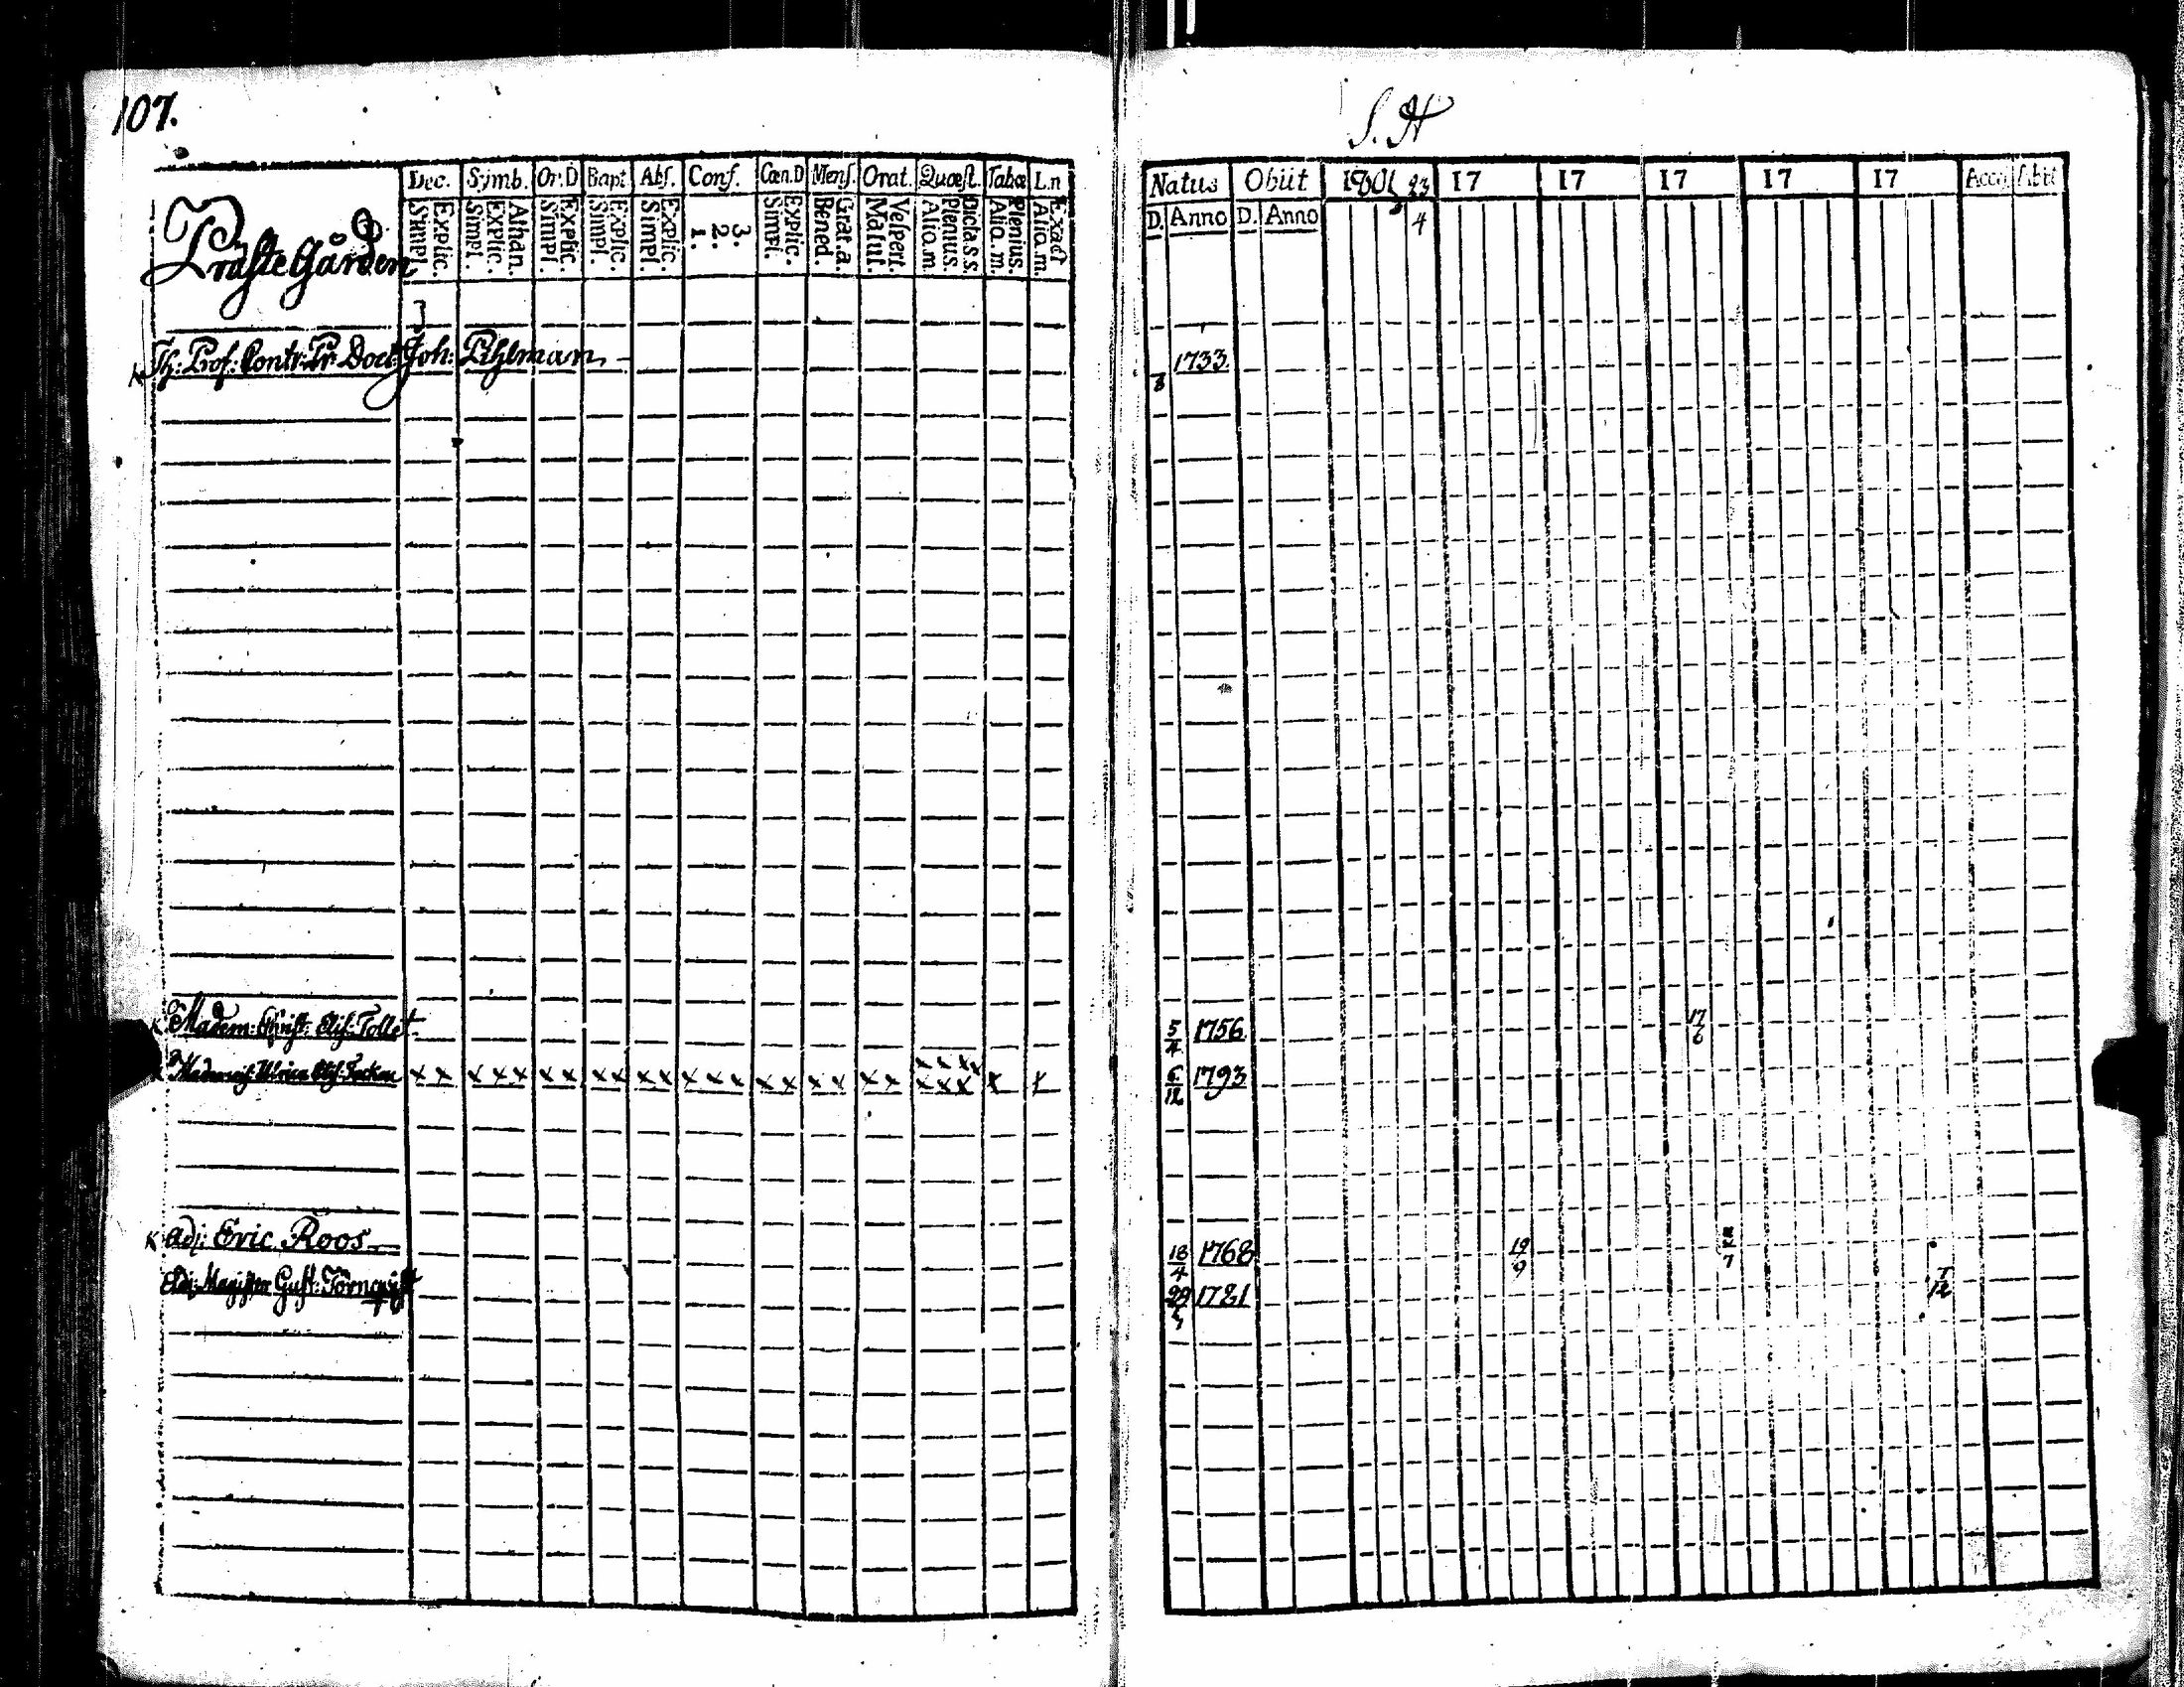 107.
S. H
PrästeGården
Dec. Symb. Or.D Bapt. Abs. Conf. Cœn.D Mens. Orat. Quæst. Tabœ L.n
Simpl. Explic. Simpl. Explic. Athan. Simpl. Explic. Simpl. Explic. Simpl. Explic. 1. 2. 3. Simpl. Explic. Bened. Grat.a. Matut. Vespert. Alio.m. Plenius. Dicta.s.s. Alio.m. Plenius. Alio.m. Exact
Natus Obiit 1801 23 17 17 17 17 17 Acces Abiit
D. Anno D. Anno 4
K Th: Prof: Contr: Pr: Doct: Joh: Pihlman 8 1733.
K Madem: Christ: Elis: Tollet 5/4 1756. 17/6
Mademois: Ulrica Elis: x x x x x x x x x x x x x x x x x x x x x x x x x x x x x x 6/12 1793
K Adj: Eric Roos 18/4 1768 19/9 7
Adj: Magister Gust: Törnqvist 29 1781 1/12